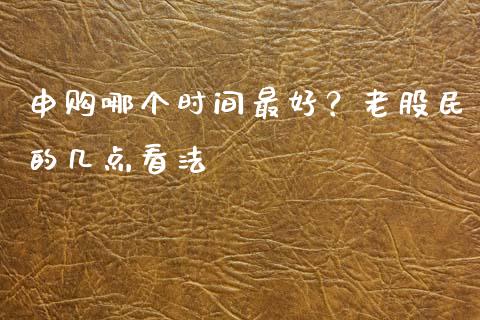 申购哪个时间最好？老股民
的几点看法